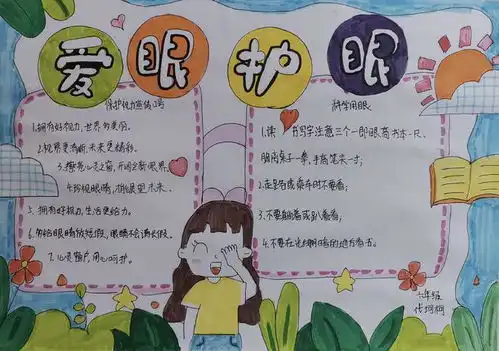 爱眼护眼
保护视力宣传口号
1.拥有好视力,世界更美丽。
2.视界更清晰,未来更精彩。
3.擦亮心灵之窗,开阔全新眼界。
4.珍视眼睛,拥展望未来。
5.拥有好视力,生活更给力。
6.勿给眼睛放短假,眼睛不会请长假。
7.心灵窗户,用心呵护。
科学用眼
1.读书写字注意三个一即眼离书本一尺,
胸离桌子一拳,手离笔尖一寸;
2.走路或乘车时不要看;
3.不要躺着或趴着看;
4.不要在光线暗的地方看书。
六年级